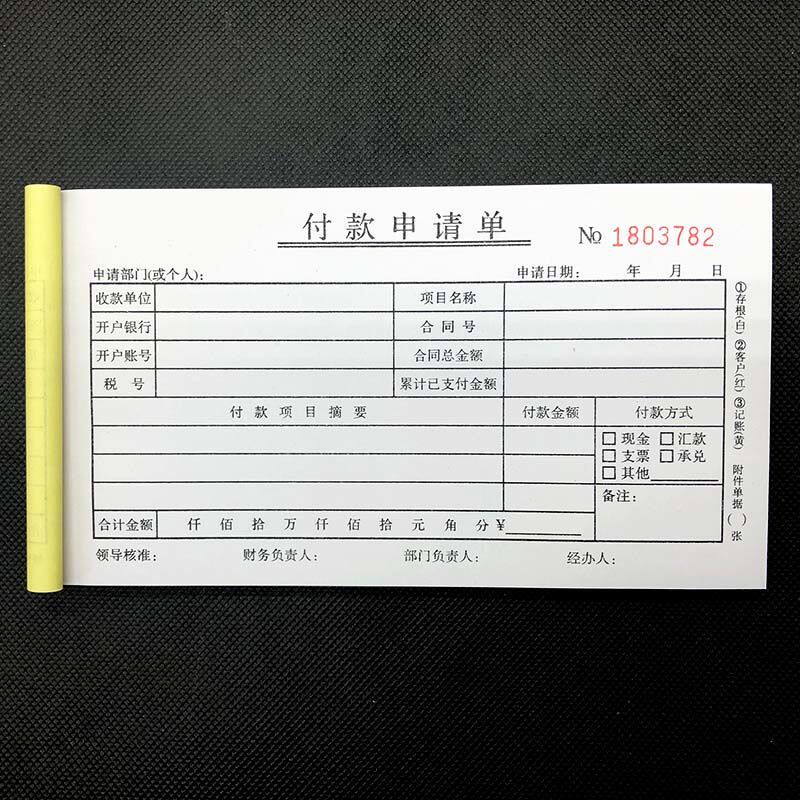 付款申请单
№ 1803782
申请部门(或个人): 申请日期: 年 月 日
收款单位 项目名称
开户银行 合同号
开户账号 合同总金额
税号 累计已支付金额
付款项目摘要 付款金额 付款方式
□现金 □汇款
□支票 □承兑
□其他
备注:
合计金额 仟 佰 拾 万 仟 佰 拾 元 角 分 ¥
领导核准: 财务负责人: 部门负责人: 经办人:
①存根(白) ②客户(红) ③记账(黄) 附件单据( )张